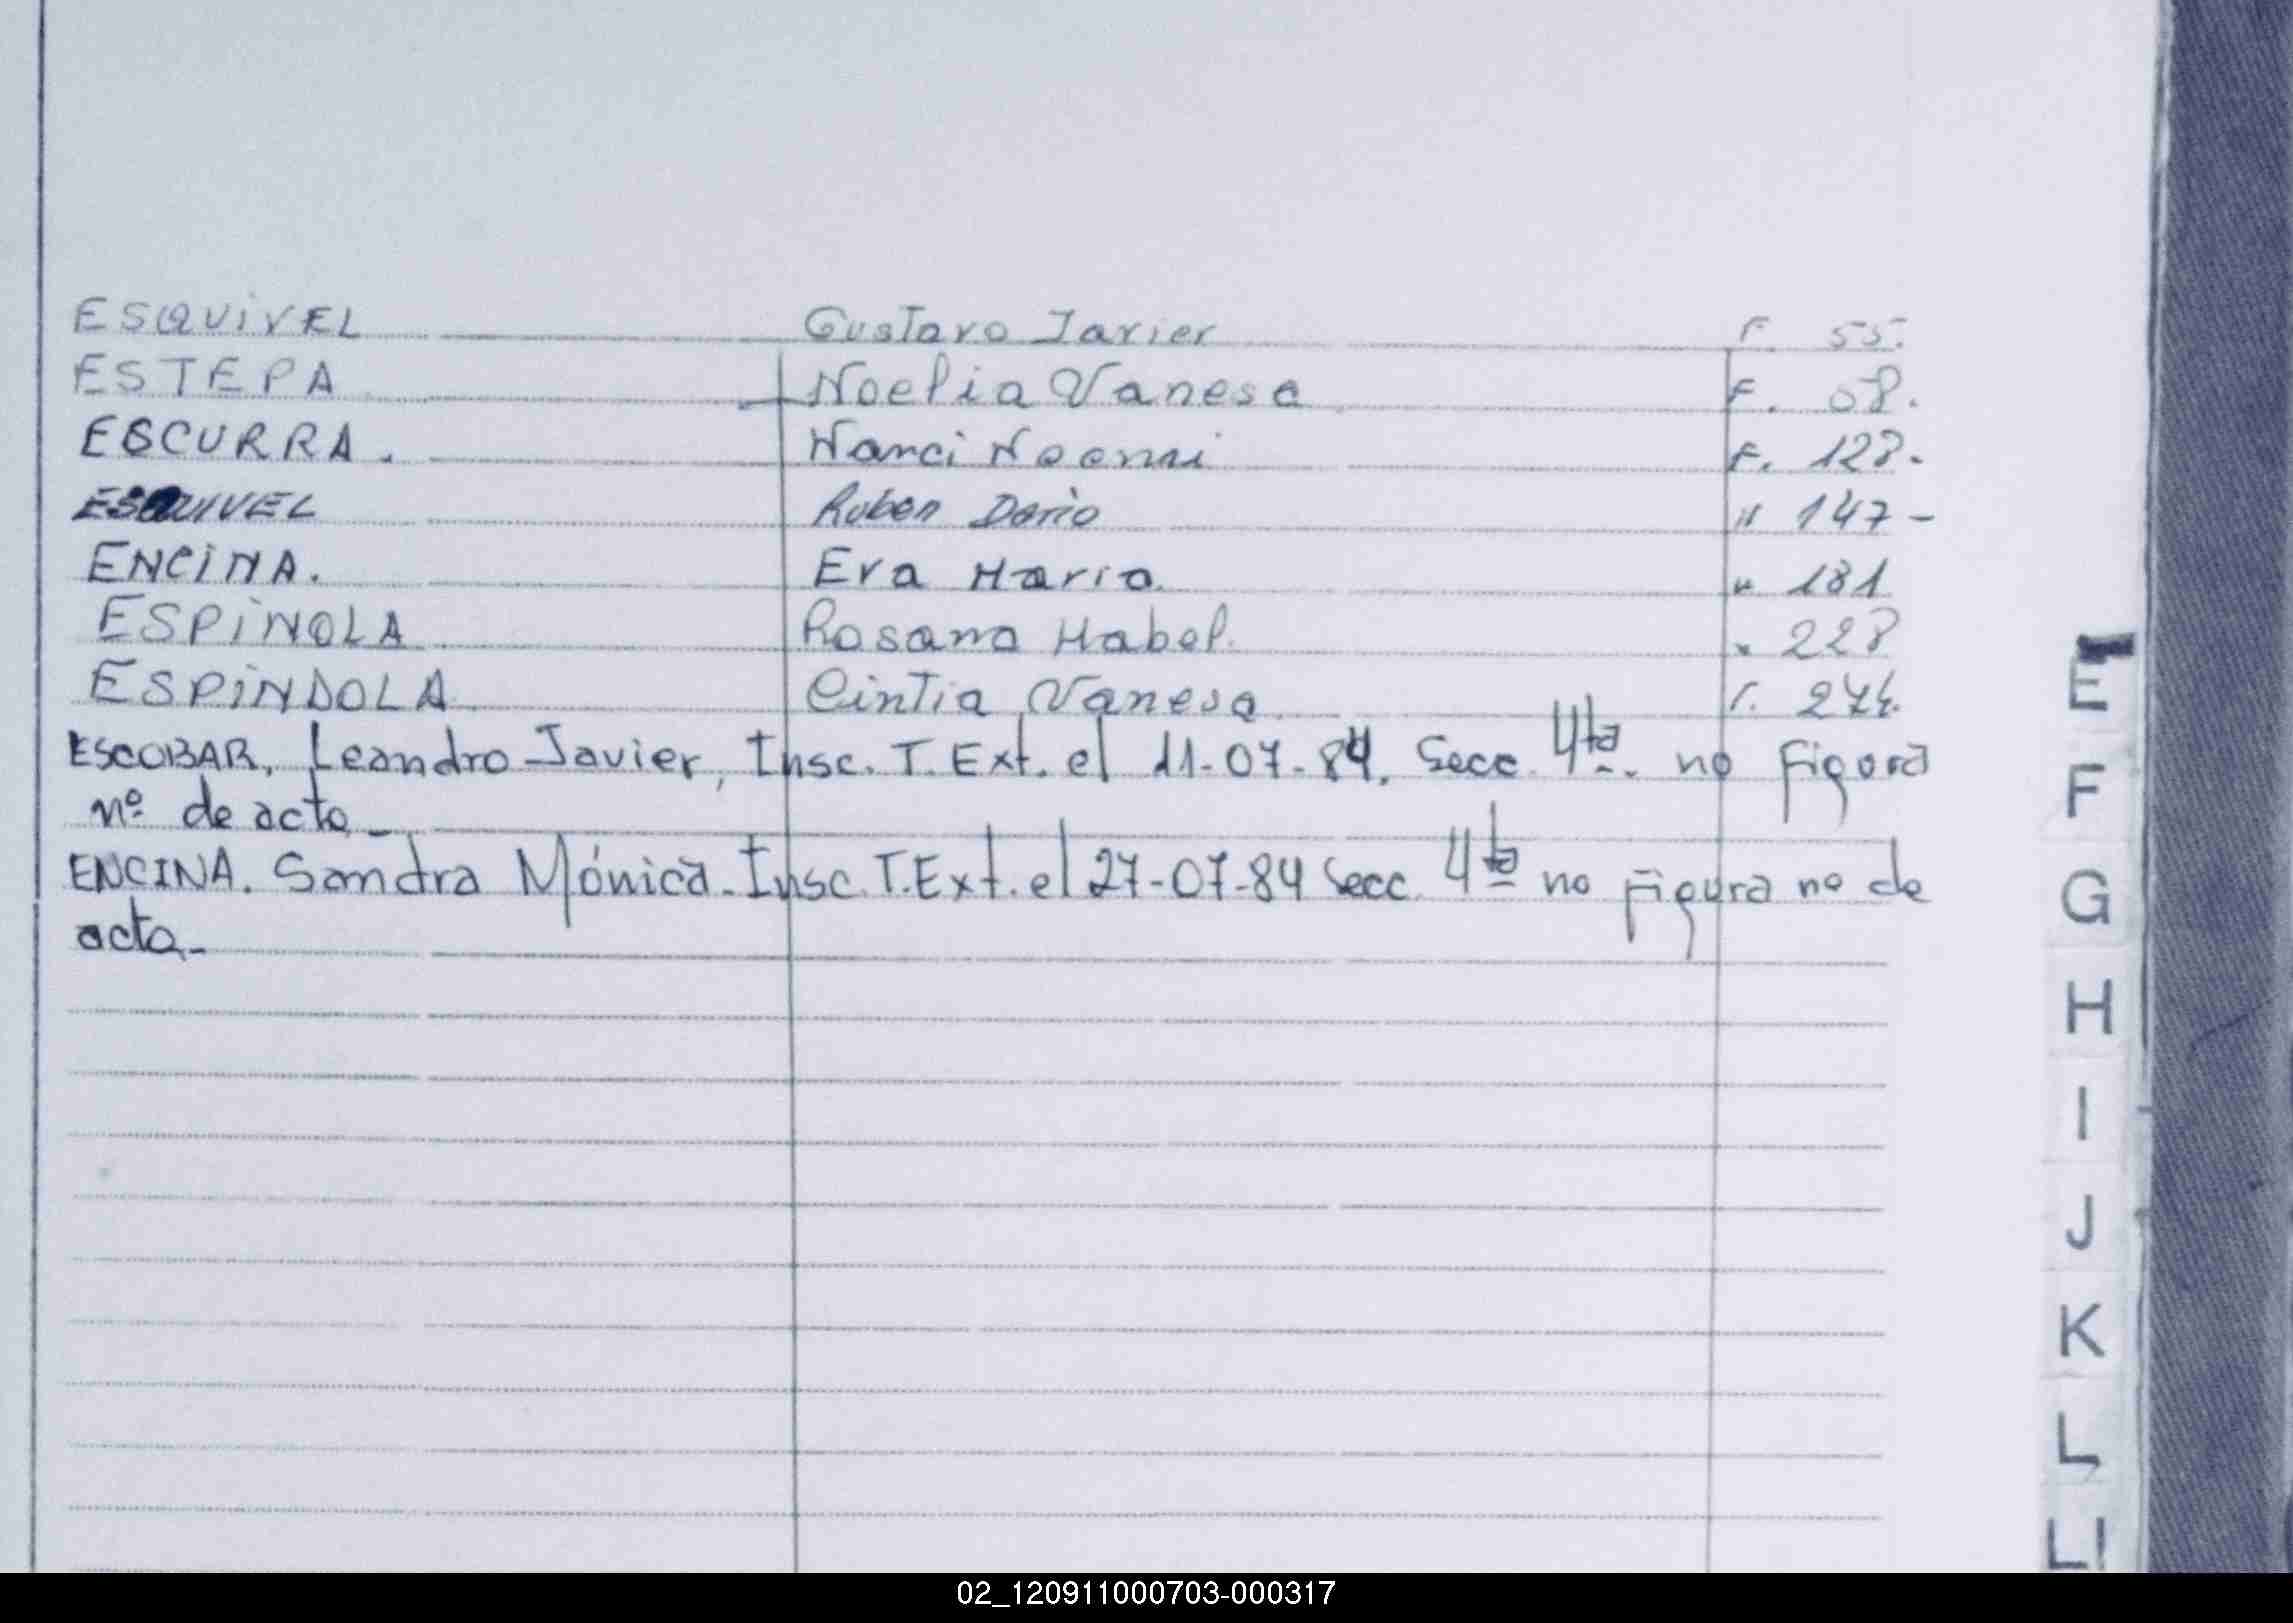 ESQUIVEL Gustavo Javier F. 55.
ESTEPA Noelia Vanesa F. 58.
ESCURRA. Nanci Noemi F. 128.
ESQUIVEL Ruben Dario " 147-
ENCINA. Eva Maria. " 181
ESPINOLA Rosana Mabel. " 228
ESPINDOLA Cintia Vanesa F. 274.
ESCOBAR, Leandro Javier, Insc. T. Ext. el 11-07-84. Secc. 4ta. no Figura
nº de acta-
ENCINA. Sandra Mónica. Insc. T. Ext. el 27-07-84 Secc. 4ta no Figura nº de
acta-
E
F
G
H
I
J
K
L
Ll
02_120911000703-000317